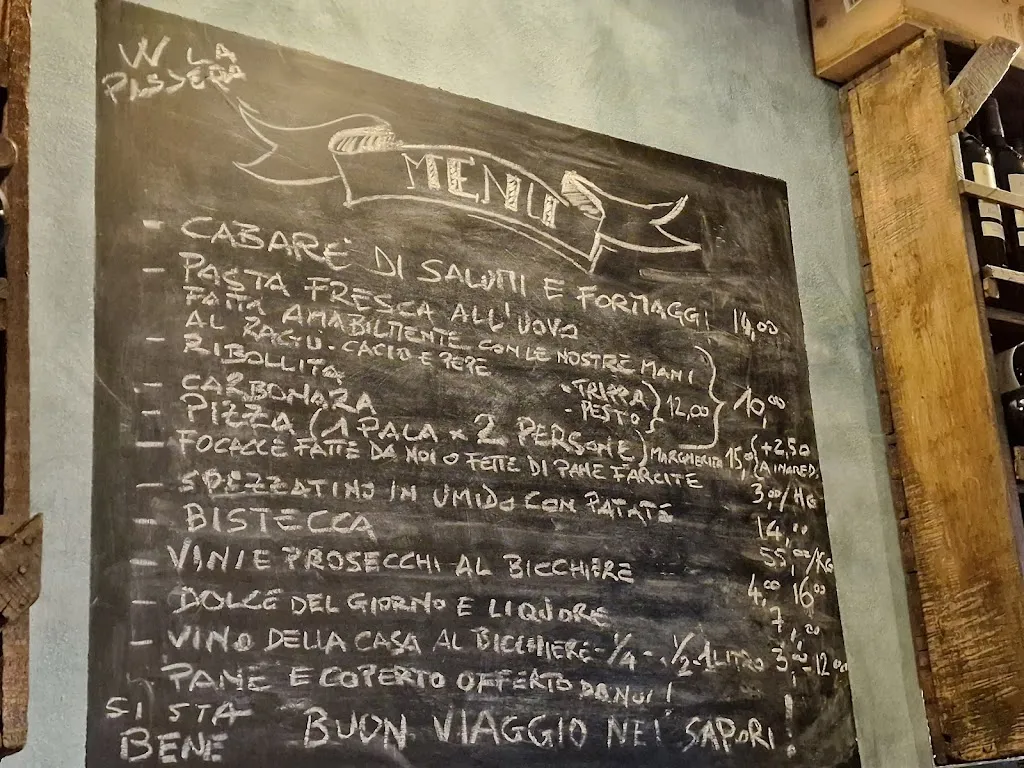 W LA
PASSERA
MENU
- CABARE' DI SALUMI E FORMAGGI 14,00
- PASTA FRESCA ALL'UOVO
FATTA AMABILMENTE CON LE NOSTRE MANI
AL RAGU - CACIO E PEPE
- RIBOLLITA - TRIPPA
- CARBONARA - PESTO 12,00 10,00
- PIZZA (1 PALA x 2 PERSONE) MARGHERITA 15,00 (+2,50
A INGRED.
- FOCACCE FATTE DA NOI O FETTE DI PANE FARCITE 3,00/HG
- SPEZZATINO IN UMIDO CON PATATE 14,00
- BISTECCA 55,00/KG
- VINI E PROSECCHI AL BICCHIERE 4,00 16,00
- DOLCE DEL GIORNO E LIQUORE 7,00
- VINO DELLA CASA AL BICCHIERE - 1/4 - 1/2 - 1 LITRO 3,00 - 12,00
PANE E COPERTO OFFERTO DA NOI!
SI STA
BENE
BUON VIAGGIO NEI SAPORI!